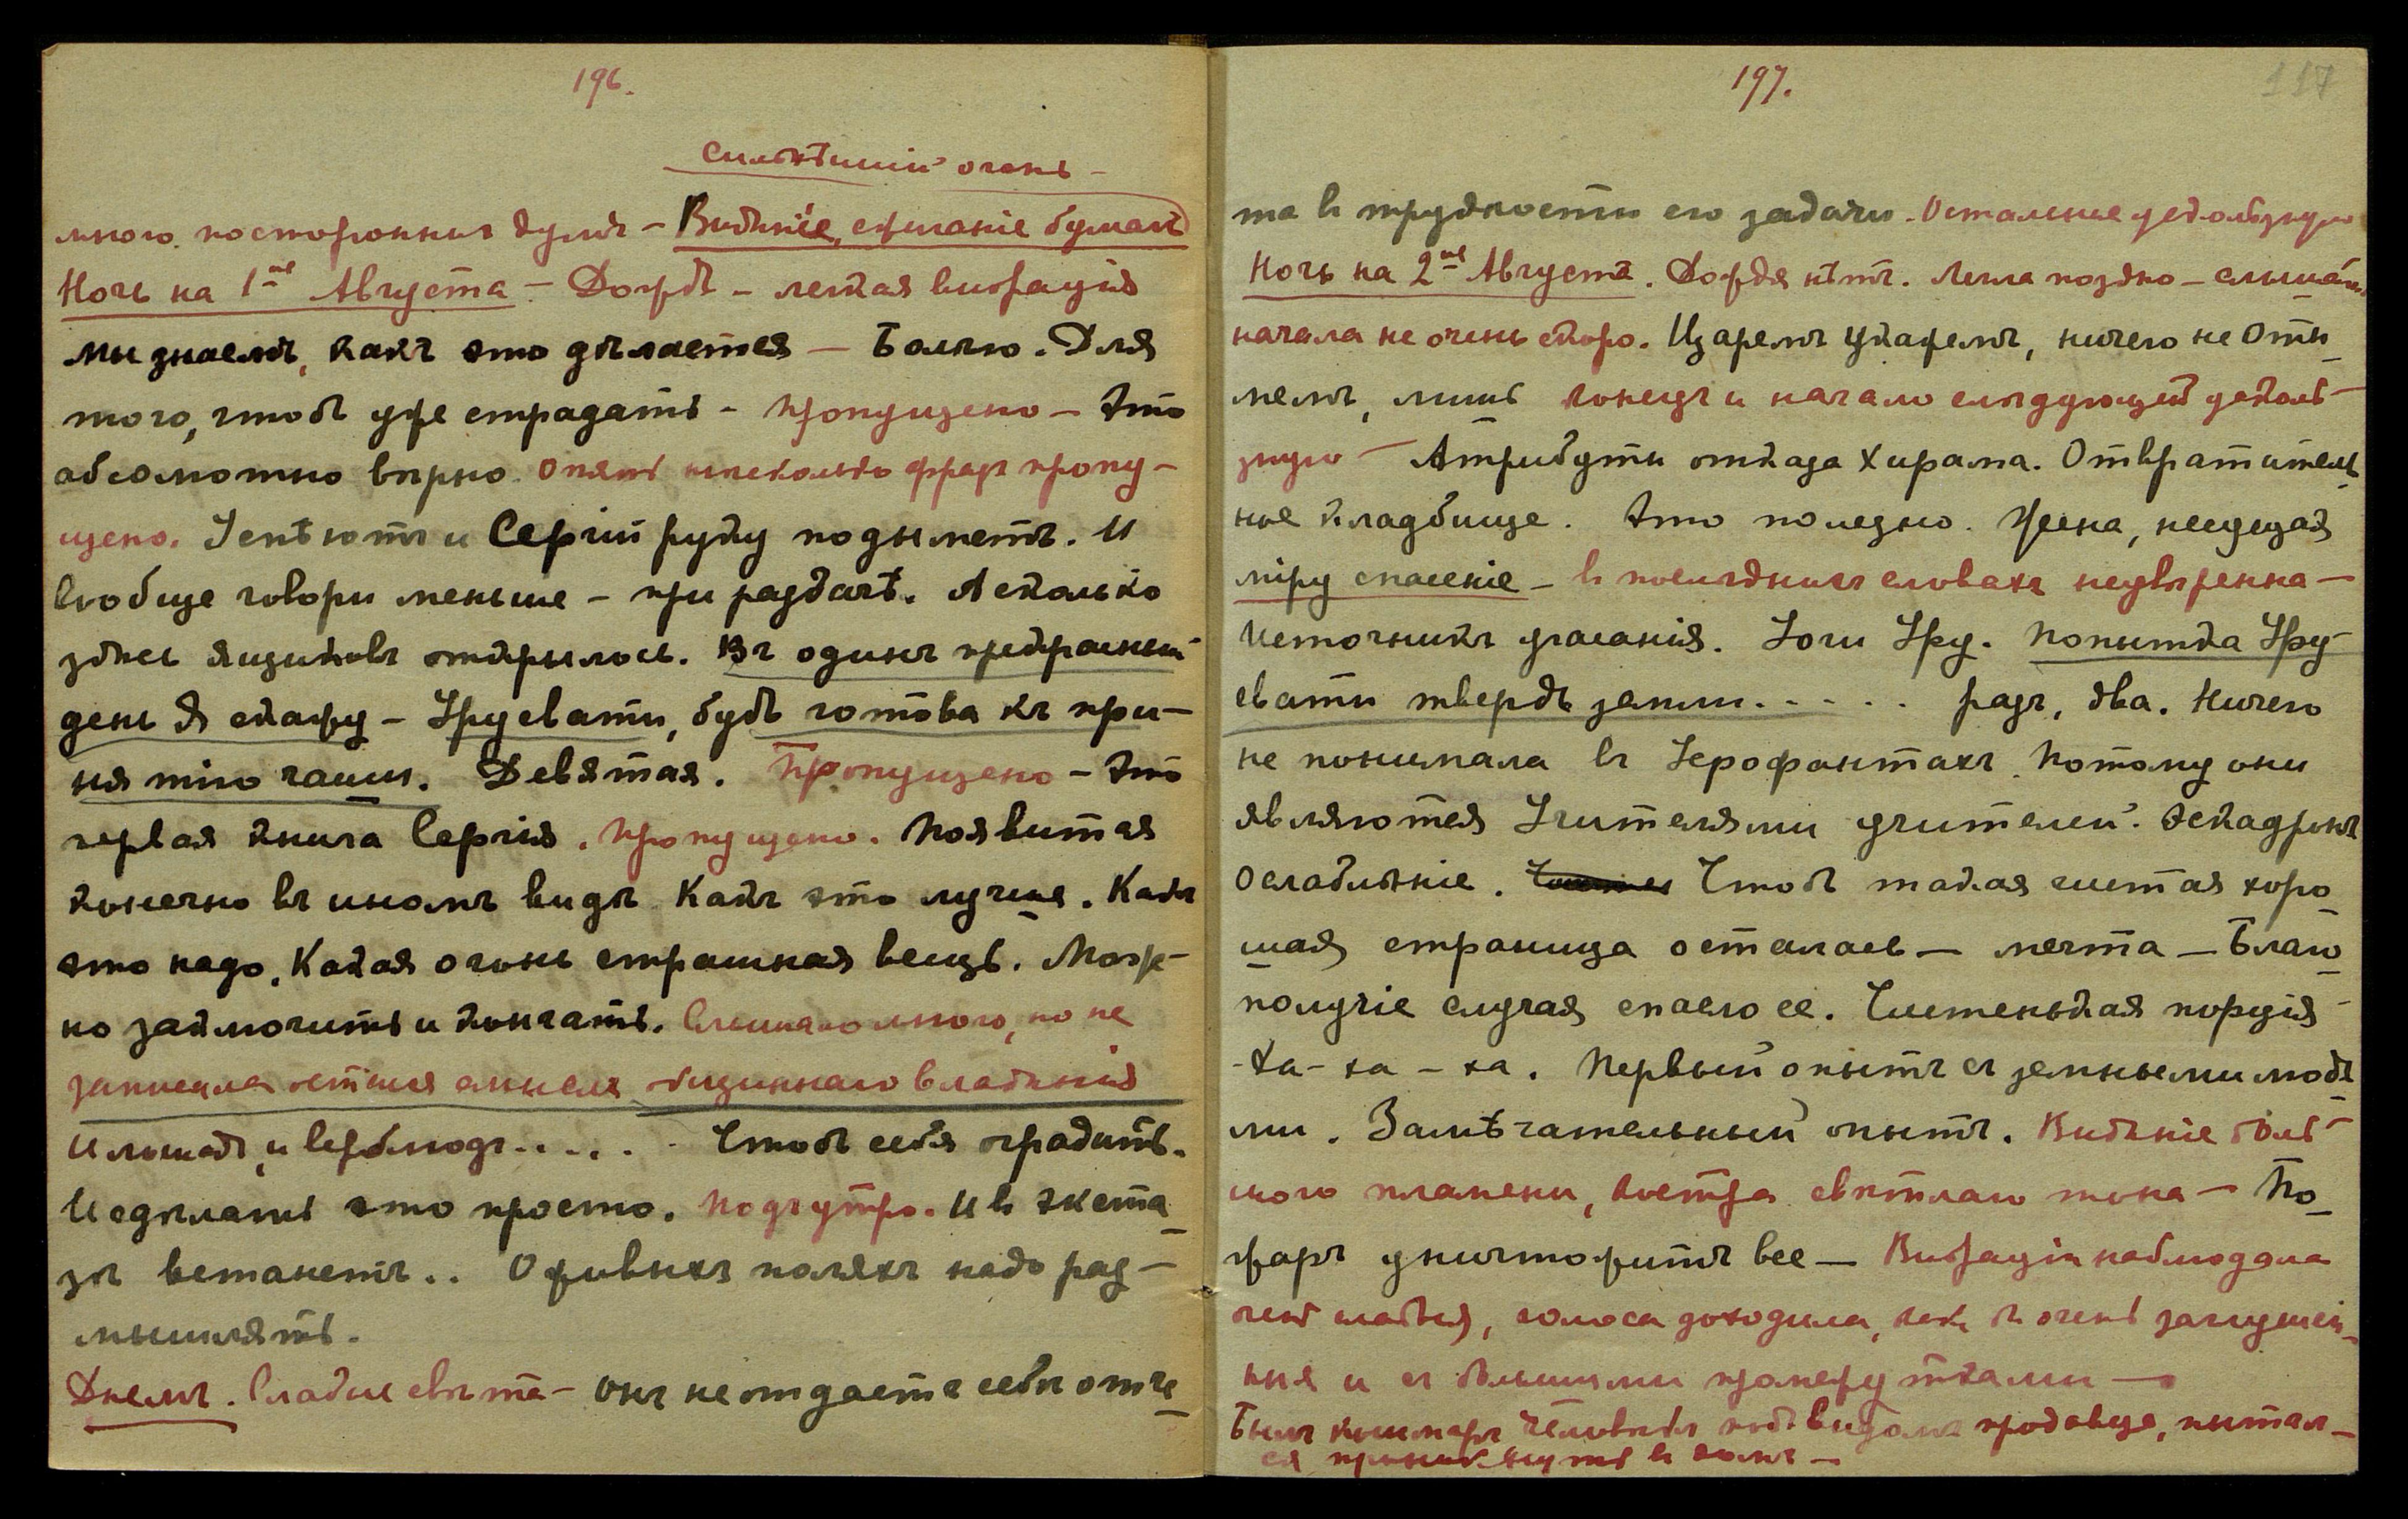 196.
сильнѣйшій огонь –
много постороннихъ думъ – Видѣніе, сжиганіе бумагъ
Ночь на 1ое Августа – Дождь – легкая вибрація
мы знаемъ, какъ это дѣлается – Болью. Для
того, чтобъ уже страдать – пропущено – Это
абсолютно вѣрно. Опять нѣсколько фразъ пропу-
щено. Успѣютъ и Сергій руку подыметъ. И
вообще говори меньше – при раздачѣ. А сколько
здѣсь ящиковъ открылось. Въ одинъ прекрасный
день Я скажу – Урусвати, будь готова къ при-
нятію чаши. Девятая. Пропущено – Это
первая книга Сергія. Пропущено. Появится
конечно въ иномъ видѣ. Какъ это лучше. Какъ
это надо. Какая огонь страшная вещь. Мож-
но замолчить и кончать. Слышано много, но не
записала
общиннаго владѣнія
И лошадь, и верблюдъ..... Чтобъ себя оградить.
И сдѣлать это просто. Подъ утро. И въ экста_
зѣ встанетъ.. О живыхъ поляхъ надо раз-
мышлять.
Днемъ. Сладкіе свѣта – Онъ не отдаетъ себѣ отче_
197.
117
та въ трудности его задачи. Остальное ускользнуло
Ночь на 2ое Августа. Дождя нѣтъ. Легла поздно – слышать
начала не очень скоро. Царемъ укажемъ, ничего не оты_
мемъ, лишь конецъ и начало слѣдующей усколь-
знуло – Атрибуты отказа Хирама. Отвратитель_
ное кладбище. Это полезно. Жена, несущая
міру спасеніе – въ послѣднихъ словахъ неувѣренна –
Источникъ угасанія. Йоги Уру. Попытка Уру-
свати твердь земли..... разъ, два. Ничего
не понимала въ Іерофантахъ. Потому они
являются Учителями учителей. Эскадронъ
Ослабленіе. Чтобъ такая чистая хоро_
шая страница осталась – мечта – Благо_
получіе случая спасло ее. Чистенькая порція –
-ха-ха-ха. Первый опытъ съ земными людь_
ми. Замѣчательный опытъ. Видѣніе боль-
шого пламени, костра свѣтлаго тона – По_
жаръ уничтожитъ все – Вибраціи наблюдала
очень слабыя, голоса доходили, но очень заглушен_
ные и съ большими промежутками –
Былъ кошмаръ человѣкъ подъ видомъ продавца, пытал-
ся проникнуть въ домъ –